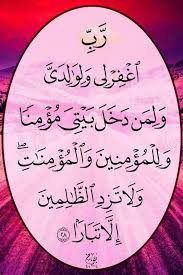 رَّبِّ
ٱغْفِرْ لِى وَلِوَٰلِدَىَّ
وَلِمَن دَخَلَ بَيْتِىَ مُؤْمِنًا
وَلِلْمُؤْمِنِينَ وَٱلْمُؤْمِنَٰتِۖ
وَلَا تَزِدِ ٱلظَّٰلِمِينَ
إِلَّا تَبَارًۢا ٢٨